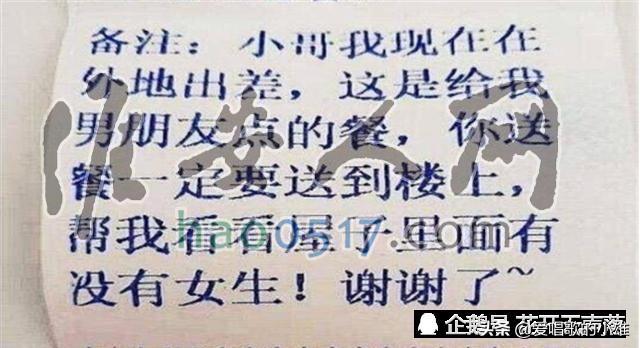 备注：小哥我现在在
外地出差，这是给我
男朋友点的餐，你送
餐一定要送到楼上，
帮我看看屋子里面有
没有女生！谢谢了~
淮安人网
hao0517.com
企鹅号 花开不言落
头条 @爱唱歌的小雄